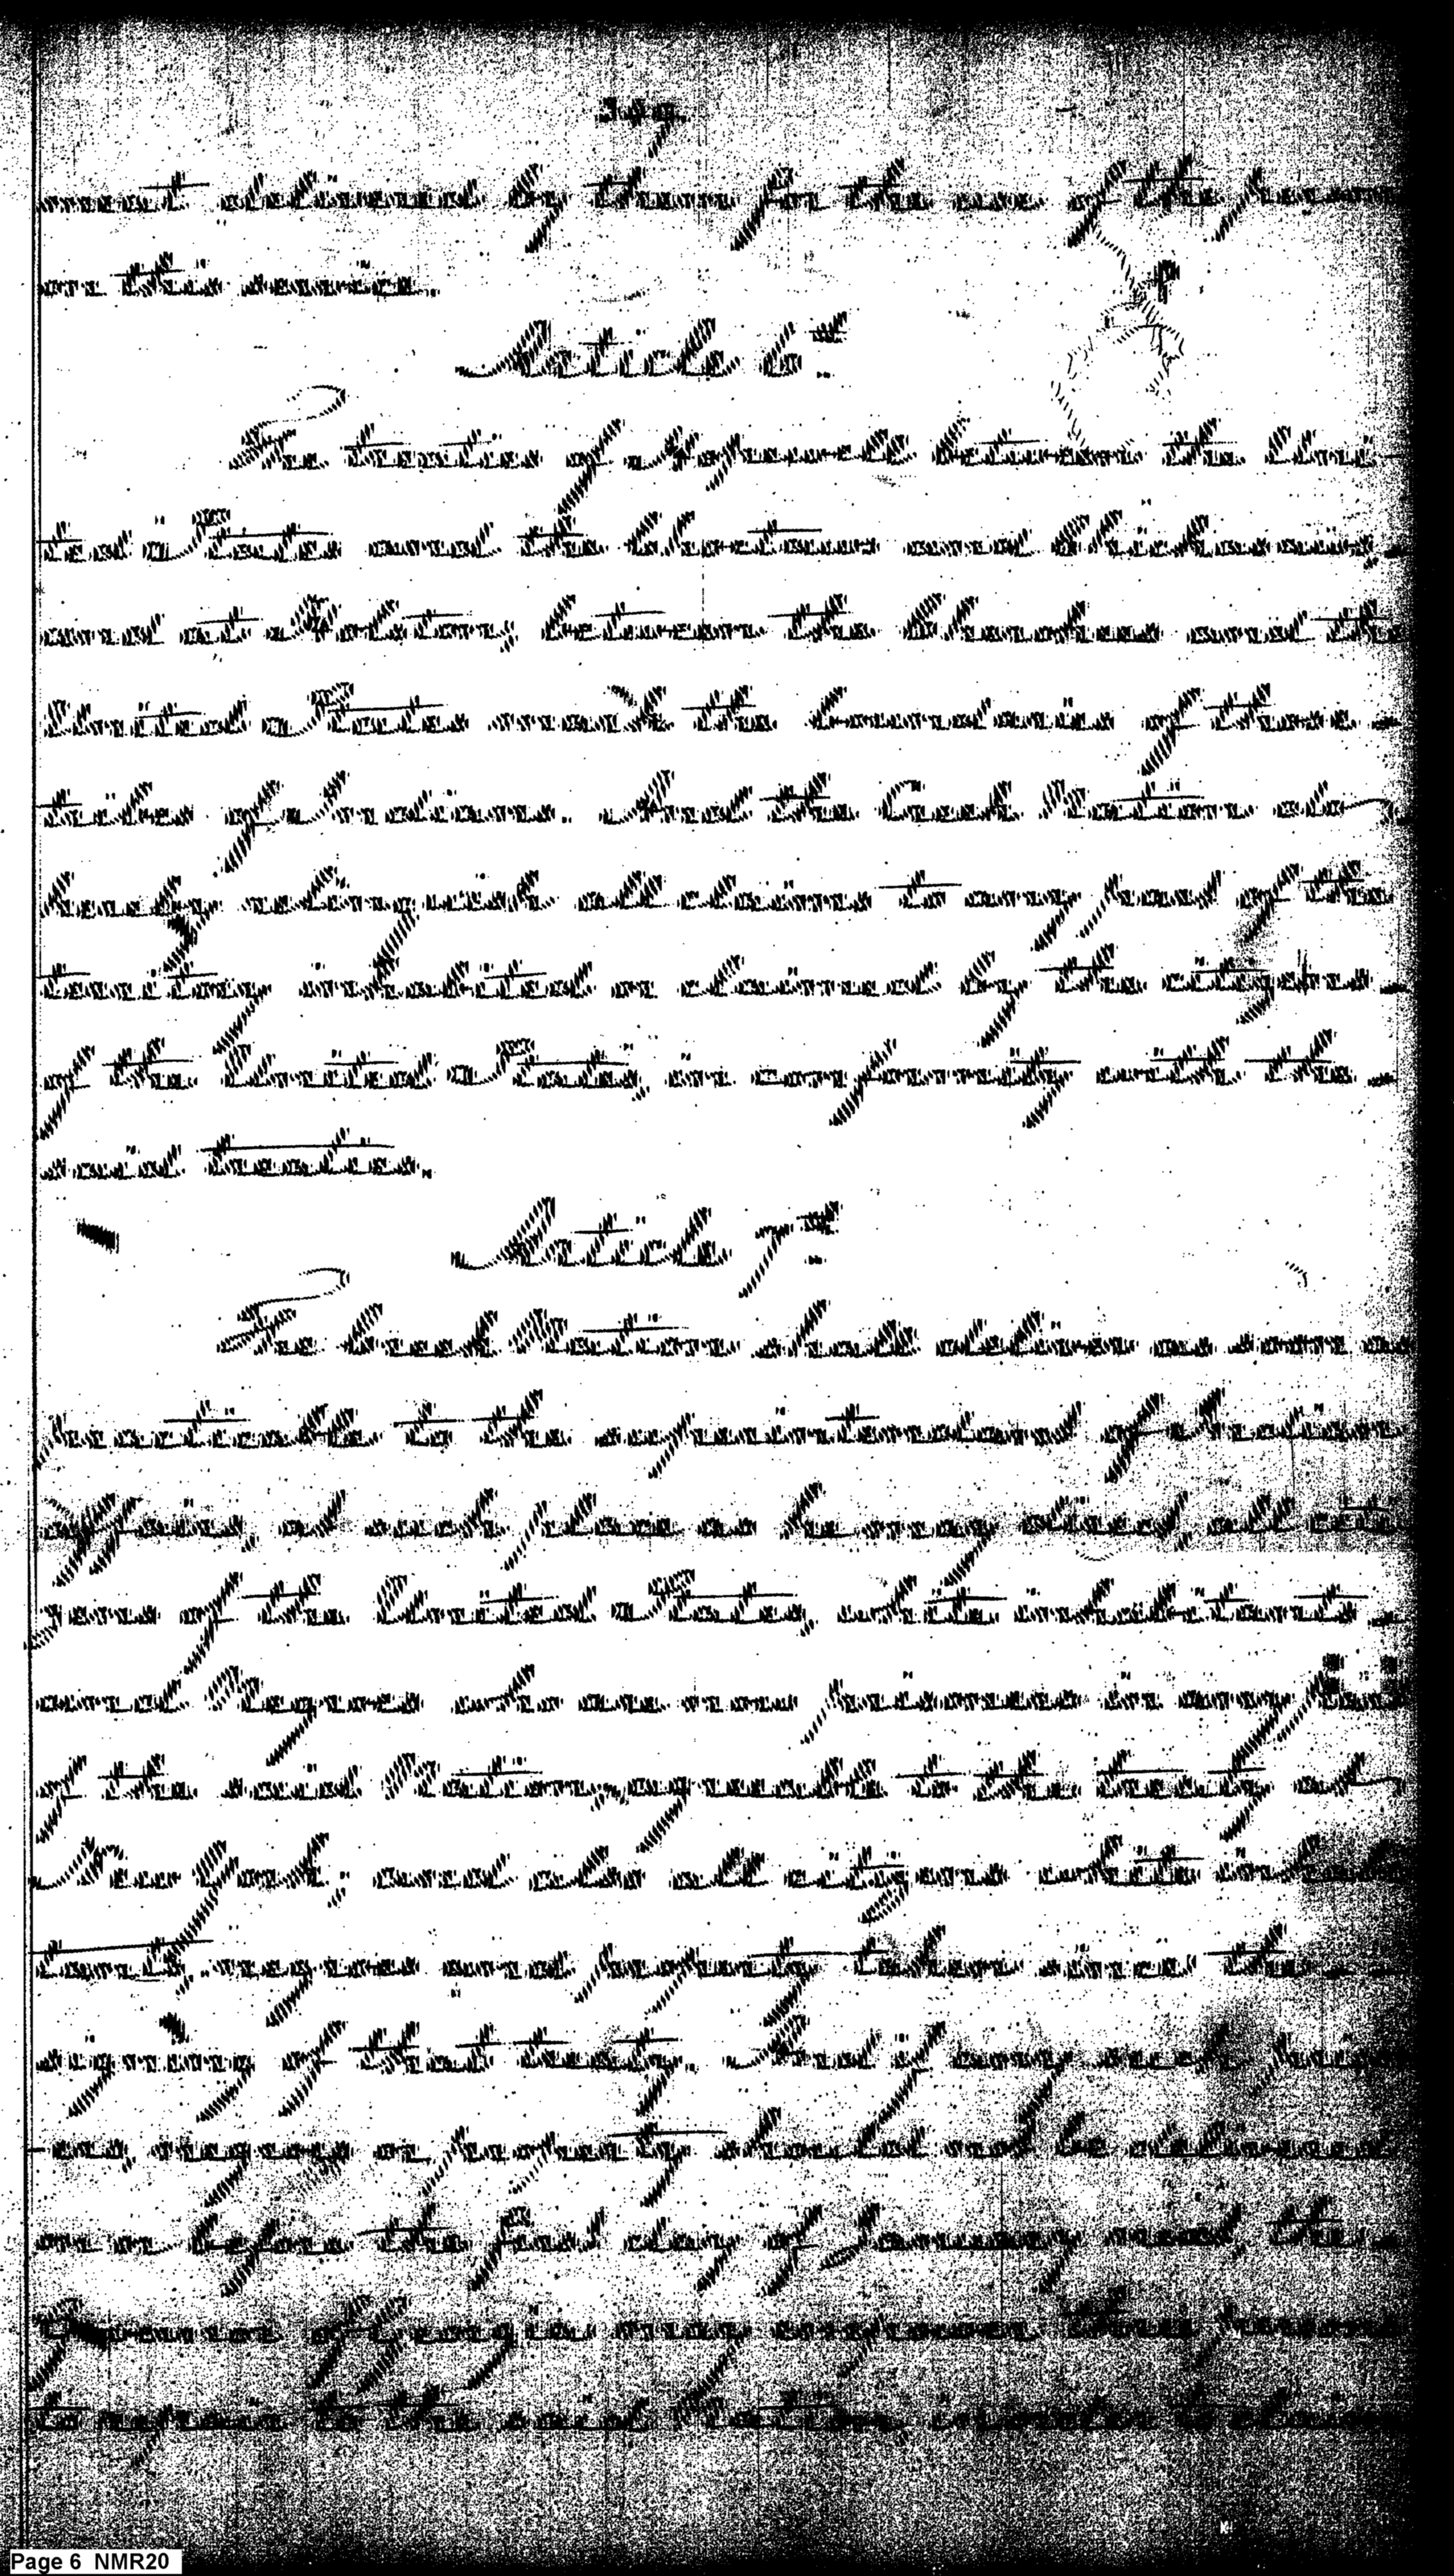 ment delivered by them for the use of the persons
on this service.
Article 6th
The treaties of Hopewell between the Uni-
ted States and the Choctaws and Chickasaws,
and at Holston, between the Cherokees and the
United States mark the boundaries of those
tribes of Indians. And the Creek Nation do
hereby relinquish all claims to any part of the
territory inhabited or claimed by the citizens
of the United States, in conformity with the
said treaties.
Article 7th
The Creek Nation shall deliver as soon as
practicable to the superintendant of Indian
Affairs, at such place as he may direct, all citi-
zens of the United States, white inhabitants
and Negroes who are now prisoners in any part
of the said Nation, agreeable to the treaty at
New York; and also all citizens white inhabi-
tants, negroes and property taken since the
signing of that treaty. And if any such prison-
ers, negroes or property should not be delivered
on or before the first day of January next, the
Governor of Georgia may empower three persons
to repair to the said Nation, in order to claim
Page 6 NMR20